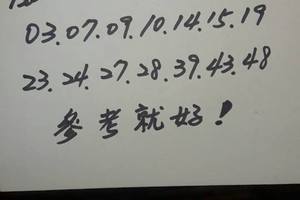 03.07.09.10.14.15.19
23.24.27.28.39.43.48
參考就好!